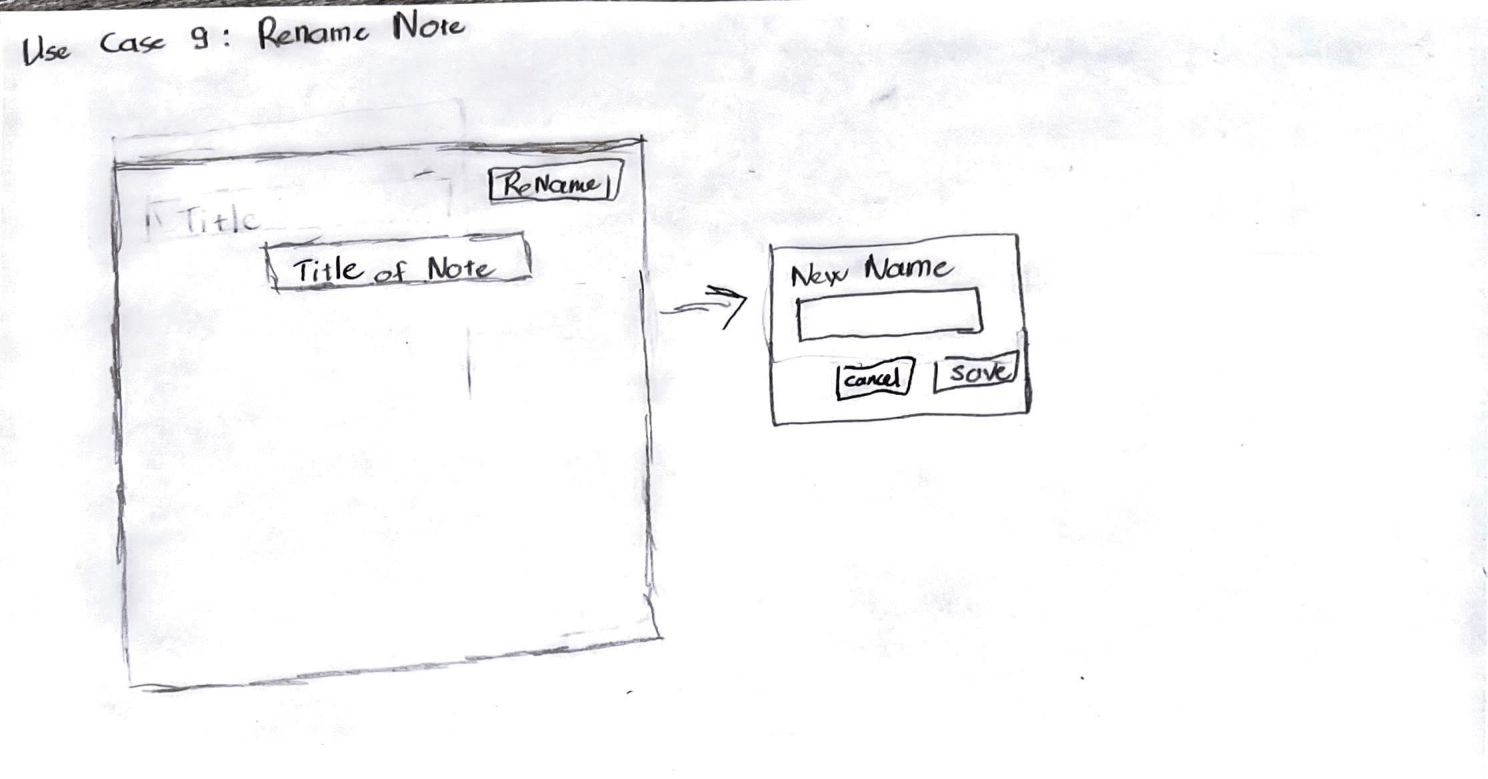 Use Case 9: Rename Note
ReName
Title
Title of Note
New Name
Cancel
Save